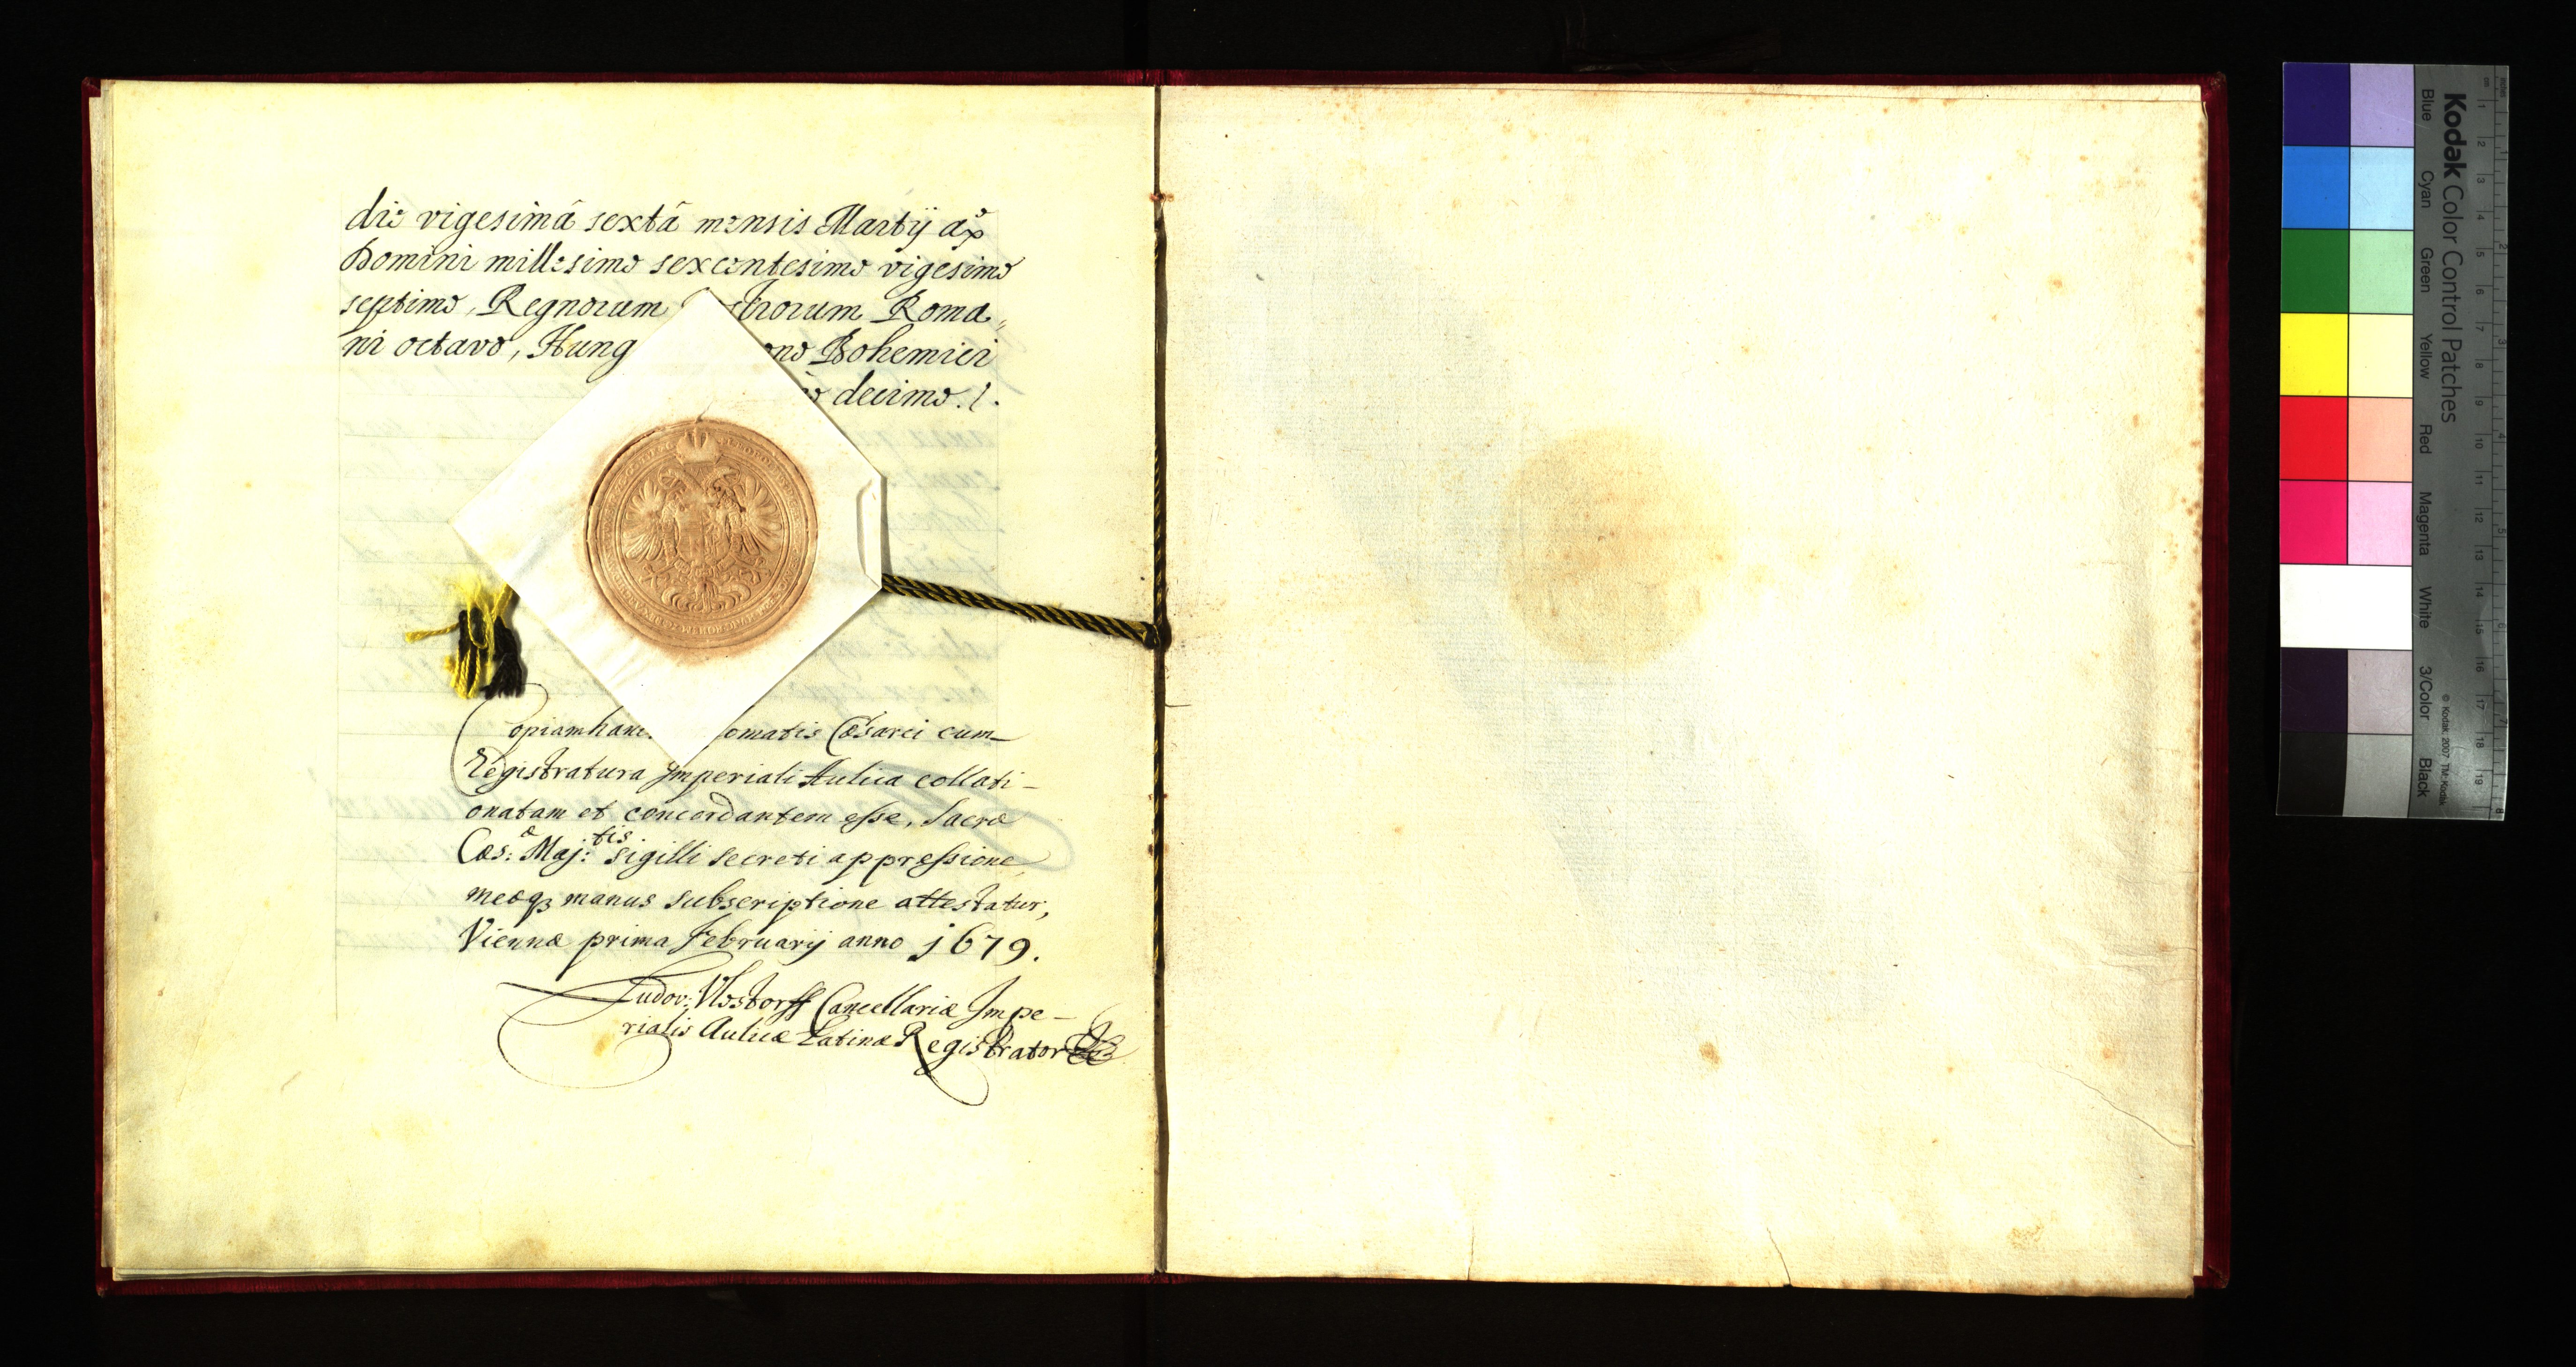 die vigesimâ sextâ mensis Martÿ aō
Domini millesimo sexcentesimo vigesimo
septimo, Regnorum trorum Roma„
ni octavo, Hung ono Bohemici
decimo.
opiam hanc omatis Cæsarei cum_
Registratura Imperiali Aulica collati_
onatam et concordantem esse, Sacræ
Cæs:æ Maj:tis sigilli secreti appressione,
meæq3 manus subscriptione attestatur,
Viennæ prima Februarij anno 1679.
Ludov: Cancellariæ Impe_
rialis Aulicæ Latinæ Registrator
Kodak Color Control Patches
© Kodak, 2007 TM: Kodak
Blue Cyan Green Yellow Red Magenta White 3/Color Black
1 2 3 4 5 6 7 8 9 10 11 12 13 14 15 16 17 18 19